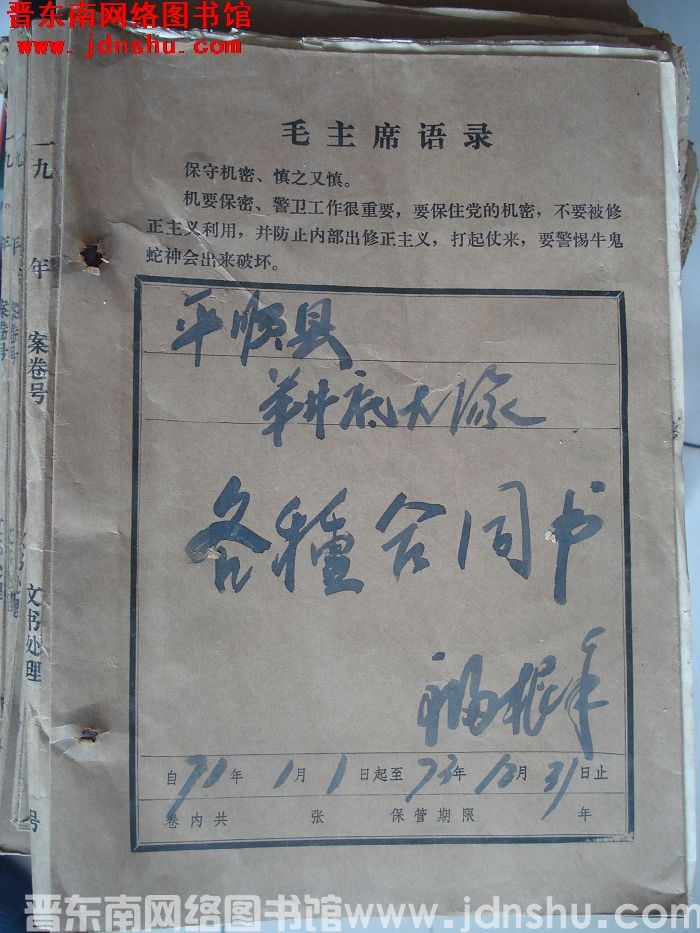 晋东南网络图书馆
www.jdnshu.com
毛主席语录
保守机密、慎之又慎。
机要保密、警卫工作很重要，要保住党的机密，不要被修
正主义利用，并防止内部出修正主义，打起仗来，要警惕牛鬼
蛇神会出来破坏。
平顺县
羊井底大队
各種合同书
自71年1月1日起至73年12月31日止
卷内共 张 保管期限 年
一九 年 案卷号 文书处理 号
晋东南网络图书馆 www.jdnshu.com